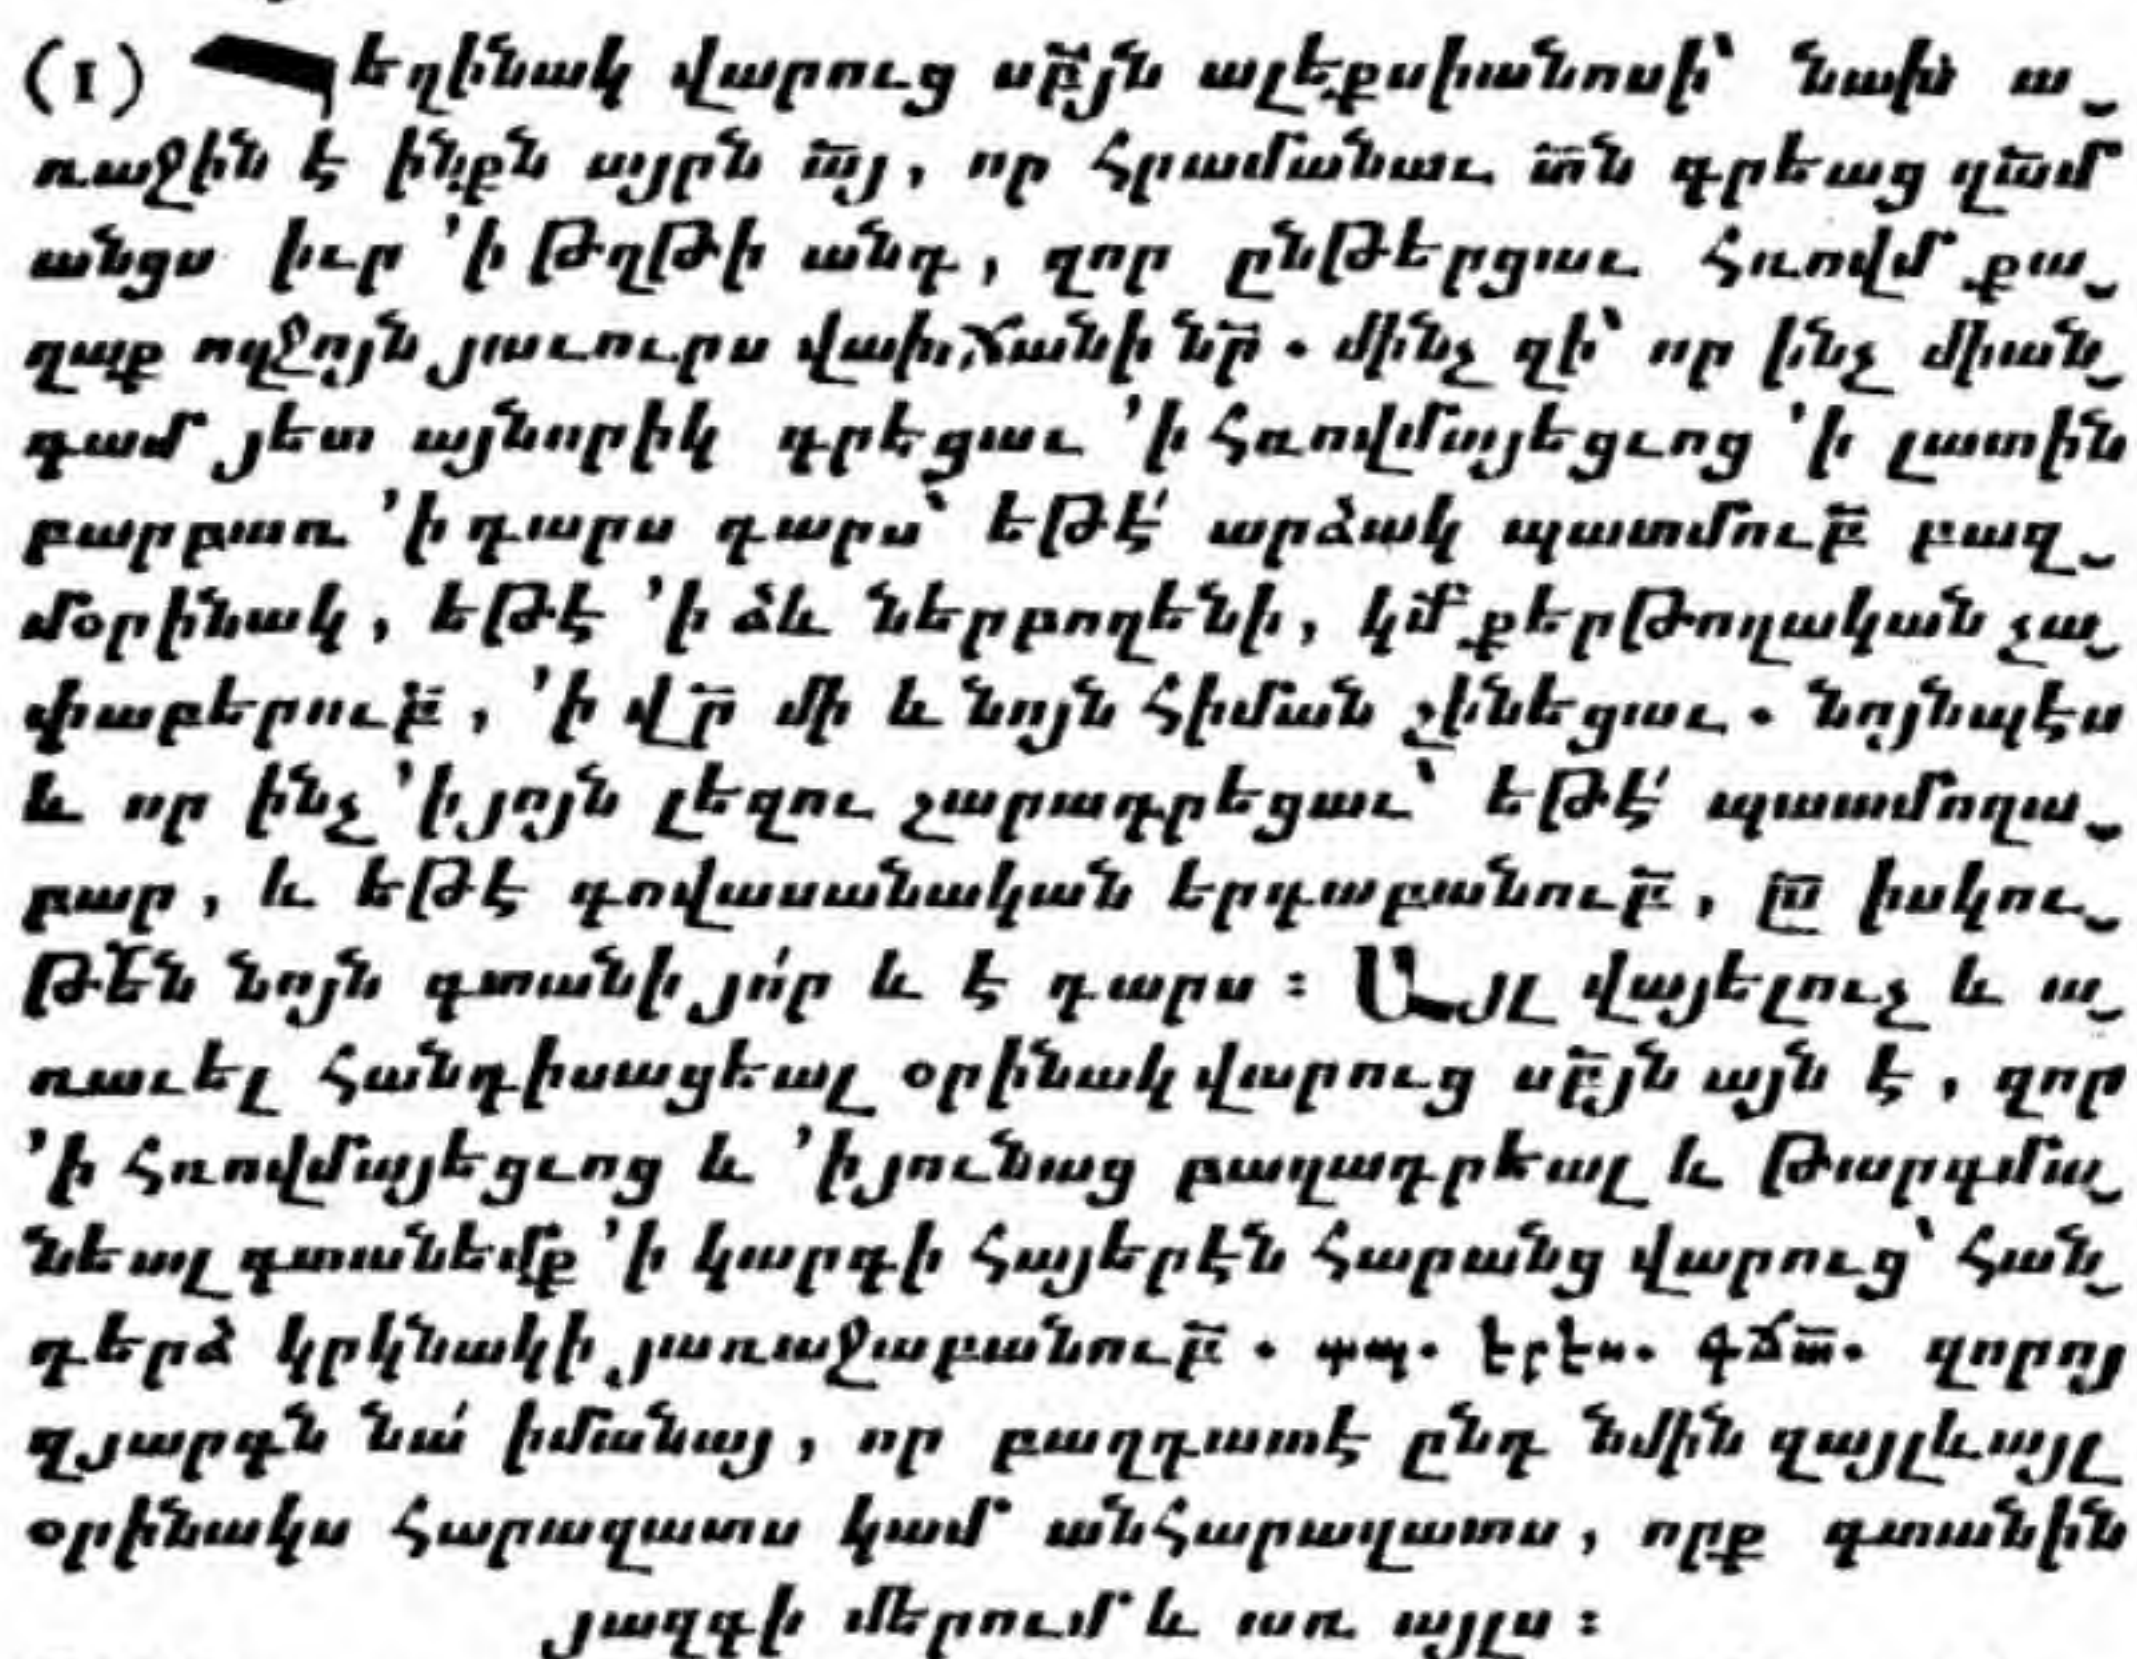 (1) Հեղինակ վարուց սր̃բյն ալէքսիանոսի՝ նախ ա֊
ռաջին է ինքն այրն ա̃յ, որ հրամանաւ տ̃ն գրեաց զա̃մ
անցս իւր ՚ի թղթի անդ, զոր ընթերցաւ Հռովմ քա֊
ղաք ողջոյն յաւուրս վախճանի նր̃ . մինչ զի՝ որ ինչ միան֊
գամ յետ այնորիկ գրեցաւ ՚ի Հռովմայեցւոց ՚ի լատին
բարբառ ՚ի դարս դարս՝ եթէ՛ արձակ պատմուբ̃ բազ֊
մօրինակ, եթէ ՚ի ձև ներբողենի, կմ̃ քերթողական չա֊
փաբերուբ̃, ՚ի վր̃ մի և նոյն հիման շինեցաւ . նոյնպէս
և որ ինչ ՚ի յոյն լեզու շարադրեցաւ՝ եթէ՛ պատմողա֊
բար, և եթէ գովասանական երգաբանուբ̃, ըստ իսկու֊
թե̃ն նոյն գտանի յո՛ր և է դարս ։ Այլ վայելուչ և ա֊
ռաւել հանդիսացեալ օրինակ վարուց սր̃բյն այն է, զոր
՚ի Հռովմայեցւոց և ՚ի յունաց բաղադրեալ և թարգմա֊
նեալ գտանեմք ՚ի կարգի հայերէն հարանց վարուց՝ հան֊
դերձ կրկնակի յառաջաբանուբ̃ . տպ. երես. գճա̃. զորոյ
զյարգն նա՛ իմանայ, որ բաղդատէ ընդ նմին զայլևայլ
օրինակս հարազատս կամ անհարազատս, որք գտանին
յազգի մերում և առ այլս ։